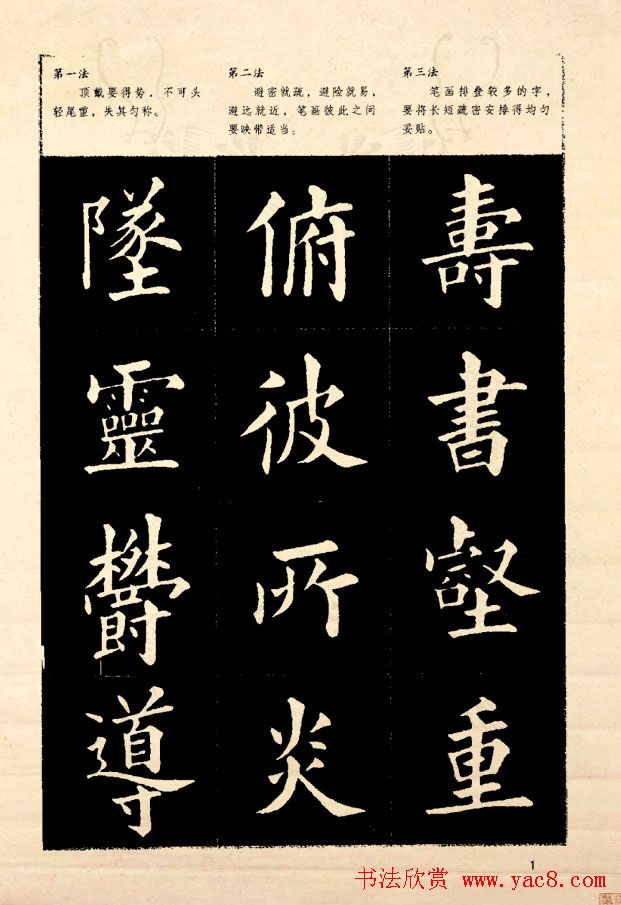 第一法
顶戴要得势，不可头
轻尾重，失其匀称。
第二法
避密就疏，避险就易，
避远就近，笔画彼此之间
要映带适当。
第三法
笔画排叠较多的字，
要将长短疏密安排得均匀
妥贴。
墜
靈
欝
導
俯
彼
所
炎
壽
書
壑
重
1
书法欣赏 www.yac8.com